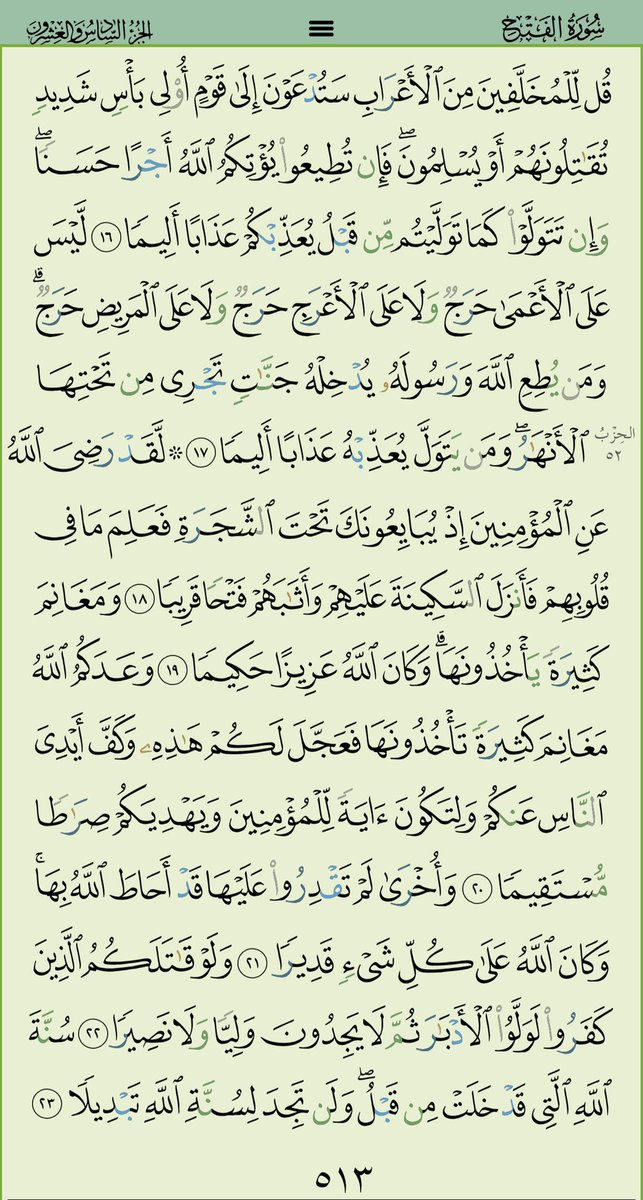 سُورَةُ الفَتْحِ الجُزْءُ السَّادِسُ وَالعِشْرُونَ
قُل لِّلْمُخَلَّفِينَ مِنَ ٱلْأَعْرَابِ سَتُدْعَوْنَ إِلَىٰ قَوْمٍ أُو۟لِى بَأْسٍ شَدِيدٍ
تُقَٰتِلُونَهُمْ أَوْ يُسْلِمُونَ ۖ فَإِن تُطِيعُوا۟ يُؤْتِكُمُ ٱللَّهُ أَجْرًا حَسَنًا ۖ
وَإِن تَتَوَلَّوْا۟ كَمَا تَوَلَّيْتُم مِّن قَبْلُ يُعَذِّبْكُمْ عَذَابًا أَلِيمًا ١٦ لَّيْسَ
عَلَى ٱلْأَعْمَىٰ حَرَجٌ وَلَا عَلَى ٱلْأَعْرَجِ حَرَجٌ وَلَا عَلَى ٱلْمَرِيضِ حَرَجٌ ۗ
وَمَن يُطِعِ ٱللَّهَ وَرَسُولَهُۥ يُدْخِلْهُ جَنَّٰتٍ تَجْرِى مِن تَحْتِهَا
الحِزْبُ ٥٢
ٱلْأَنْهَٰرُ ۖ وَمَن يَتَوَلَّ يُعَذِّبْهُ عَذَابًا أَلِيمًا ١٧ ۞ لَّقَدْ رَضِىَ ٱللَّهُ
عَنِ ٱلْمُؤْمِنِينَ إِذْ يُبَايِعُونَكَ تَحْتَ ٱلشَّجَرَةِ فَعَلِمَ مَا فِى
قُلُوبِهِمْ فَأَنزَلَ ٱلسَّكِينَةَ عَلَيْهِمْ وَأَثَٰبَهُمْ فَتْحًا قَرِيبًا ١٨ وَمَغَانِمَ
كَثِيرَةً يَأْخُذُونَهَا ۗ وَكَانَ ٱللَّهُ عَزِيزًا حَكِيمًا ١٩ وَعَدَكُمُ ٱللَّهُ
مَغَانِمَ كَثِيرَةً تَأْخُذُونَهَا فَعَجَّلَ لَكُمْ هَٰذِهِۦ وَكَفَّ أَيْدِىَ
ٱلنَّاسِ عَنكُمْ وَلِتَكُونَ ءَايَةً لِّلْمُؤْمِنِينَ وَيَهْدِيَكُمْ صِرَٰطًا
مُّسْتَقِيمًا ٢٠ وَأُخْرَىٰ لَمْ تَقْدِرُوا۟ عَلَيْهَا قَدْ أَحَاطَ ٱللَّهُ بِهَا ۚ
وَكَانَ ٱللَّهُ عَلَىٰ كُلِّ شَىْءٍ قَدِيرًا ٢١ وَلَوْ قَٰتَلَكُمُ ٱلَّذِينَ
كَفَرُوا۟ لَوَلَّوُا۟ ٱلْأَدْبَٰرَ ثُمَّ لَا يَجِدُونَ وَلِيًّا وَلَا نَصِيرًا ٢٢ سُنَّةَ
ٱللَّهِ ٱلَّتِى قَدْ خَلَتْ مِن قَبْلُ ۖ وَلَن تَجِدَ لِسُنَّةِ ٱللَّهِ تَبْدِيلًا ٢٣
٥١٣